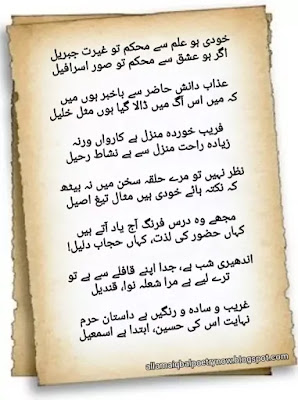 خودی ہو علم سے محکم تو غیرت جبریل
اگر ہو عشق سے محکم تو صور اسرافیل
عذاب دانش حاضر سے باخبر ہوں میں
کہ میں اس آگ میں ڈالا گیا ہوں مثل خلیل
فریب خوردہ منزل ہے کارواں ورنہ
زیادہ راحت منزل سے ہے نشاط رحیل
نظر نہیں تو مرے حلقہ سخن میں نہ بیٹھ
کہ نکتہ ہائے خودی ہیں مثال تیغ اصیل
مجھے وہ درس فرنگ آج یاد آتے ہیں
کہاں حضور کی لذت، کہاں حجاب دلیل!
اندھیری شب ہے، جدا اپنے قافلے سے ہے تو
ترے لیے ہے مرا شعلہ نوا، قندیل
غریب و سادہ و رنگیں ہے داستان حرم
نہایت اس کی حسین، ابتدا ہے اسمعیل
allamaiqbalpoetrynow.blogspot.com